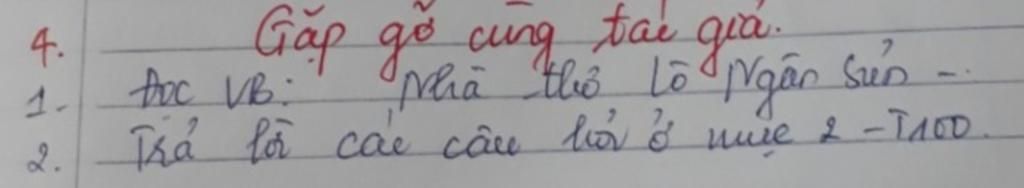 4. Gặp gỡ cùng tác giả.
1- Đọc VB: Nhà thơ Lò Ngân Sủn -
2. Trả lời các câu hỏi ở mục 2 - T100.